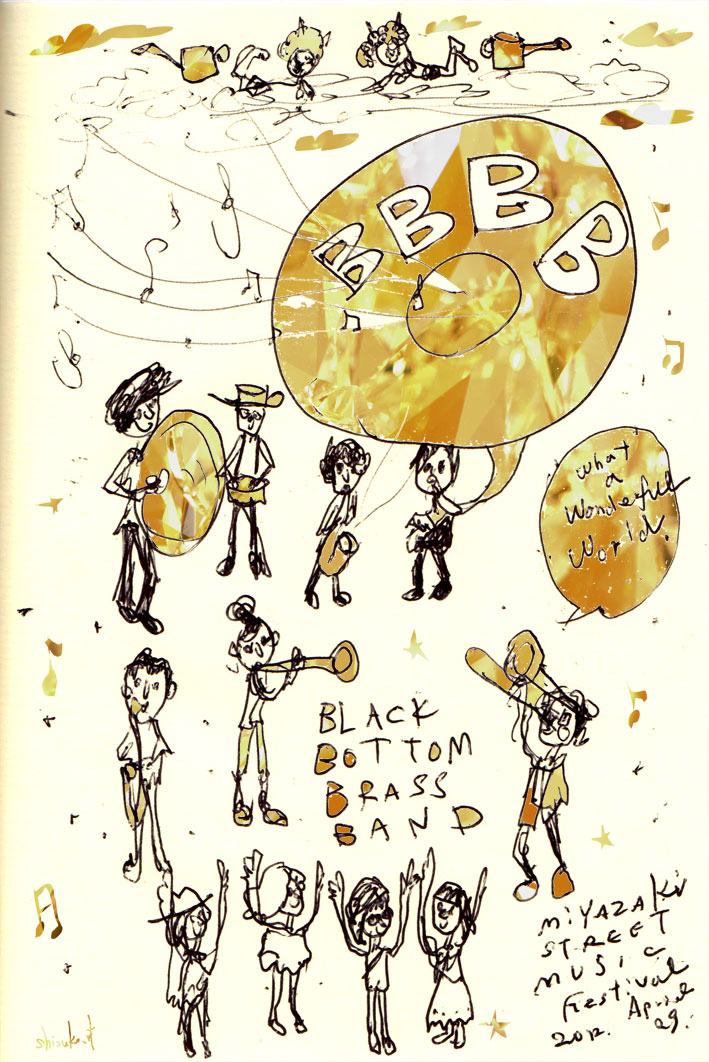 BBBB
what
a
wonderful
world.
BLACK
BOTTOM
BRASS
BAND
MiYAZAKi
STREET
MUSIC
Festival
2012. April
29.
shizuka.t